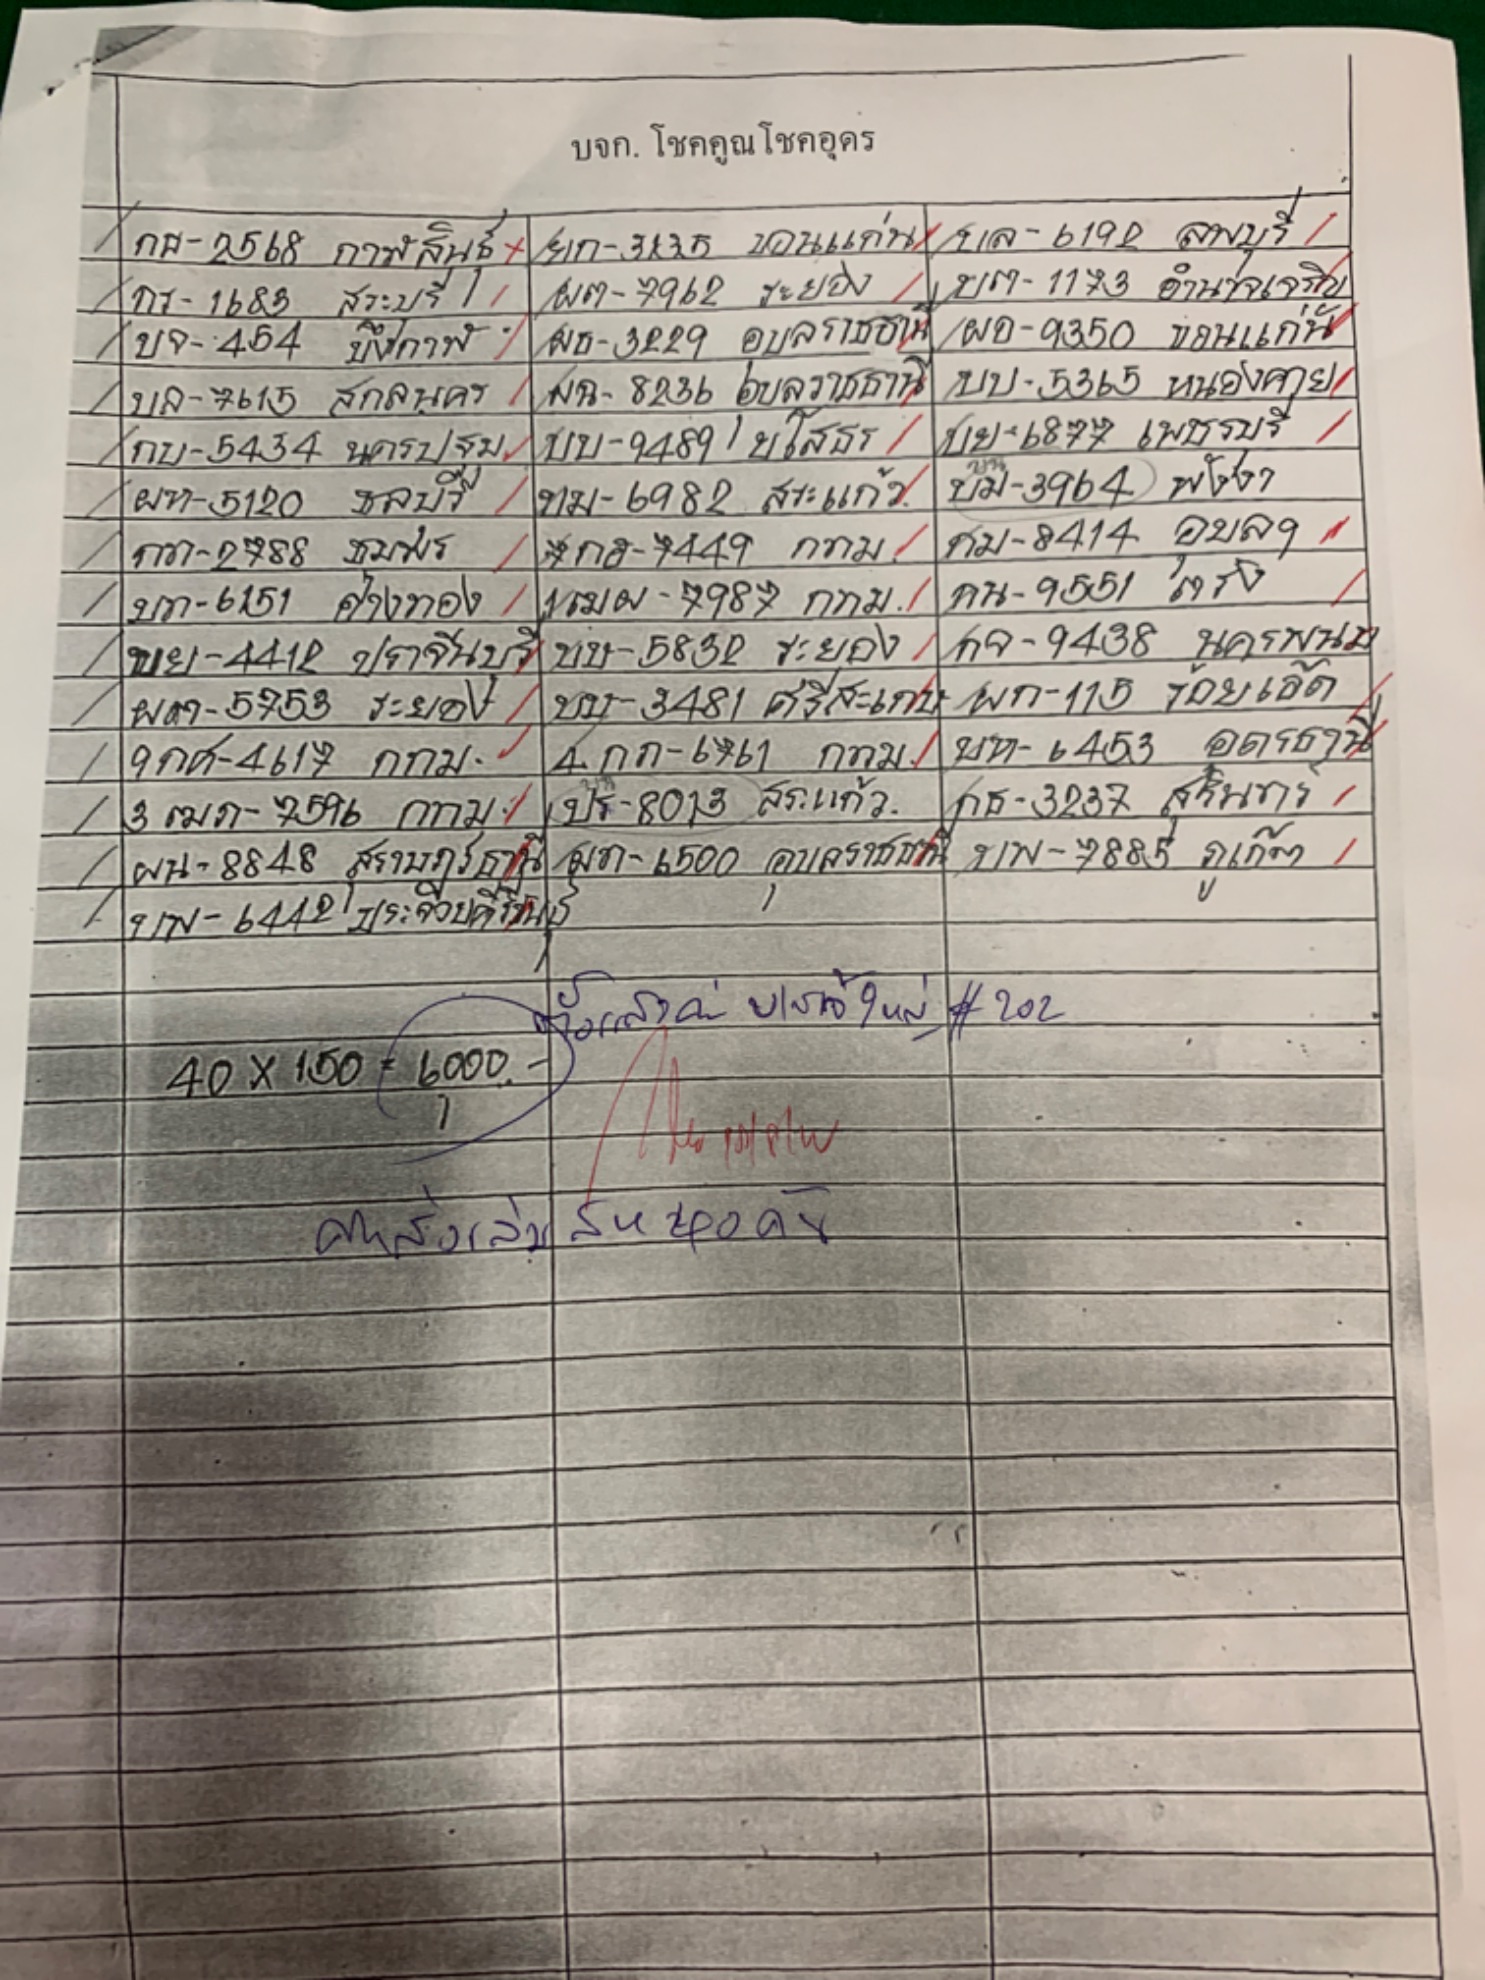 บจก. โชคคูณโชคอุดร
กส-2568 กาฬสินธุ์ ยก-3235 ขอนแก่น บล-6192 ลพบุรี
กร-1683 สระบุรี ผต-7962 ระยอง บต-1173 อำนาจเจริญ
บจ-454 บึงกาฬ ผธ-3229 อุบลราชธานี ผอ-9350 ขอนแก่น
บล-7615 สกลนคร ผฉ-8236 อุบลราชธานี บบ-5365 หนองคาย
กบ-5434 นครปฐม บบ-9489 ยโสธร บย-6877 เพชรบุรี
ผห-5120 ชลบุรี กม-6982 สระแก้ว บม-3964 พังงา
กก-2788 ชุมพร 7กธ-7449 กทม. กม-8414 อุบลฯ
บก-6151 อ่างทอง 1ฒผ-7987 กทม. กน-9551 ตรัง
ขย-4412 ปราจีนบุรี บบ-5832 ระยอง กจ-9438 นครพนม
ผต-5753 ระยอง บบ-3481 ศรีสะเกษ ผก-115 ร้อยเอ็ด
9กศ-4617 กทม. 4กภ-6761 กทม. บท-6453 อุดรธานี
3ฒภ-7596 กทม. ปร-8013 สระแก้ว. กธ-3237 สุรินทร์
ผน-8848 สุราษฎร์ธานี ผก-6500 อุบลราชธานี บพ-7885 ภูเก็ต
บพ-6442 ประจวบคีรีขันธ์
# 202
40 X 150 = 6000.-